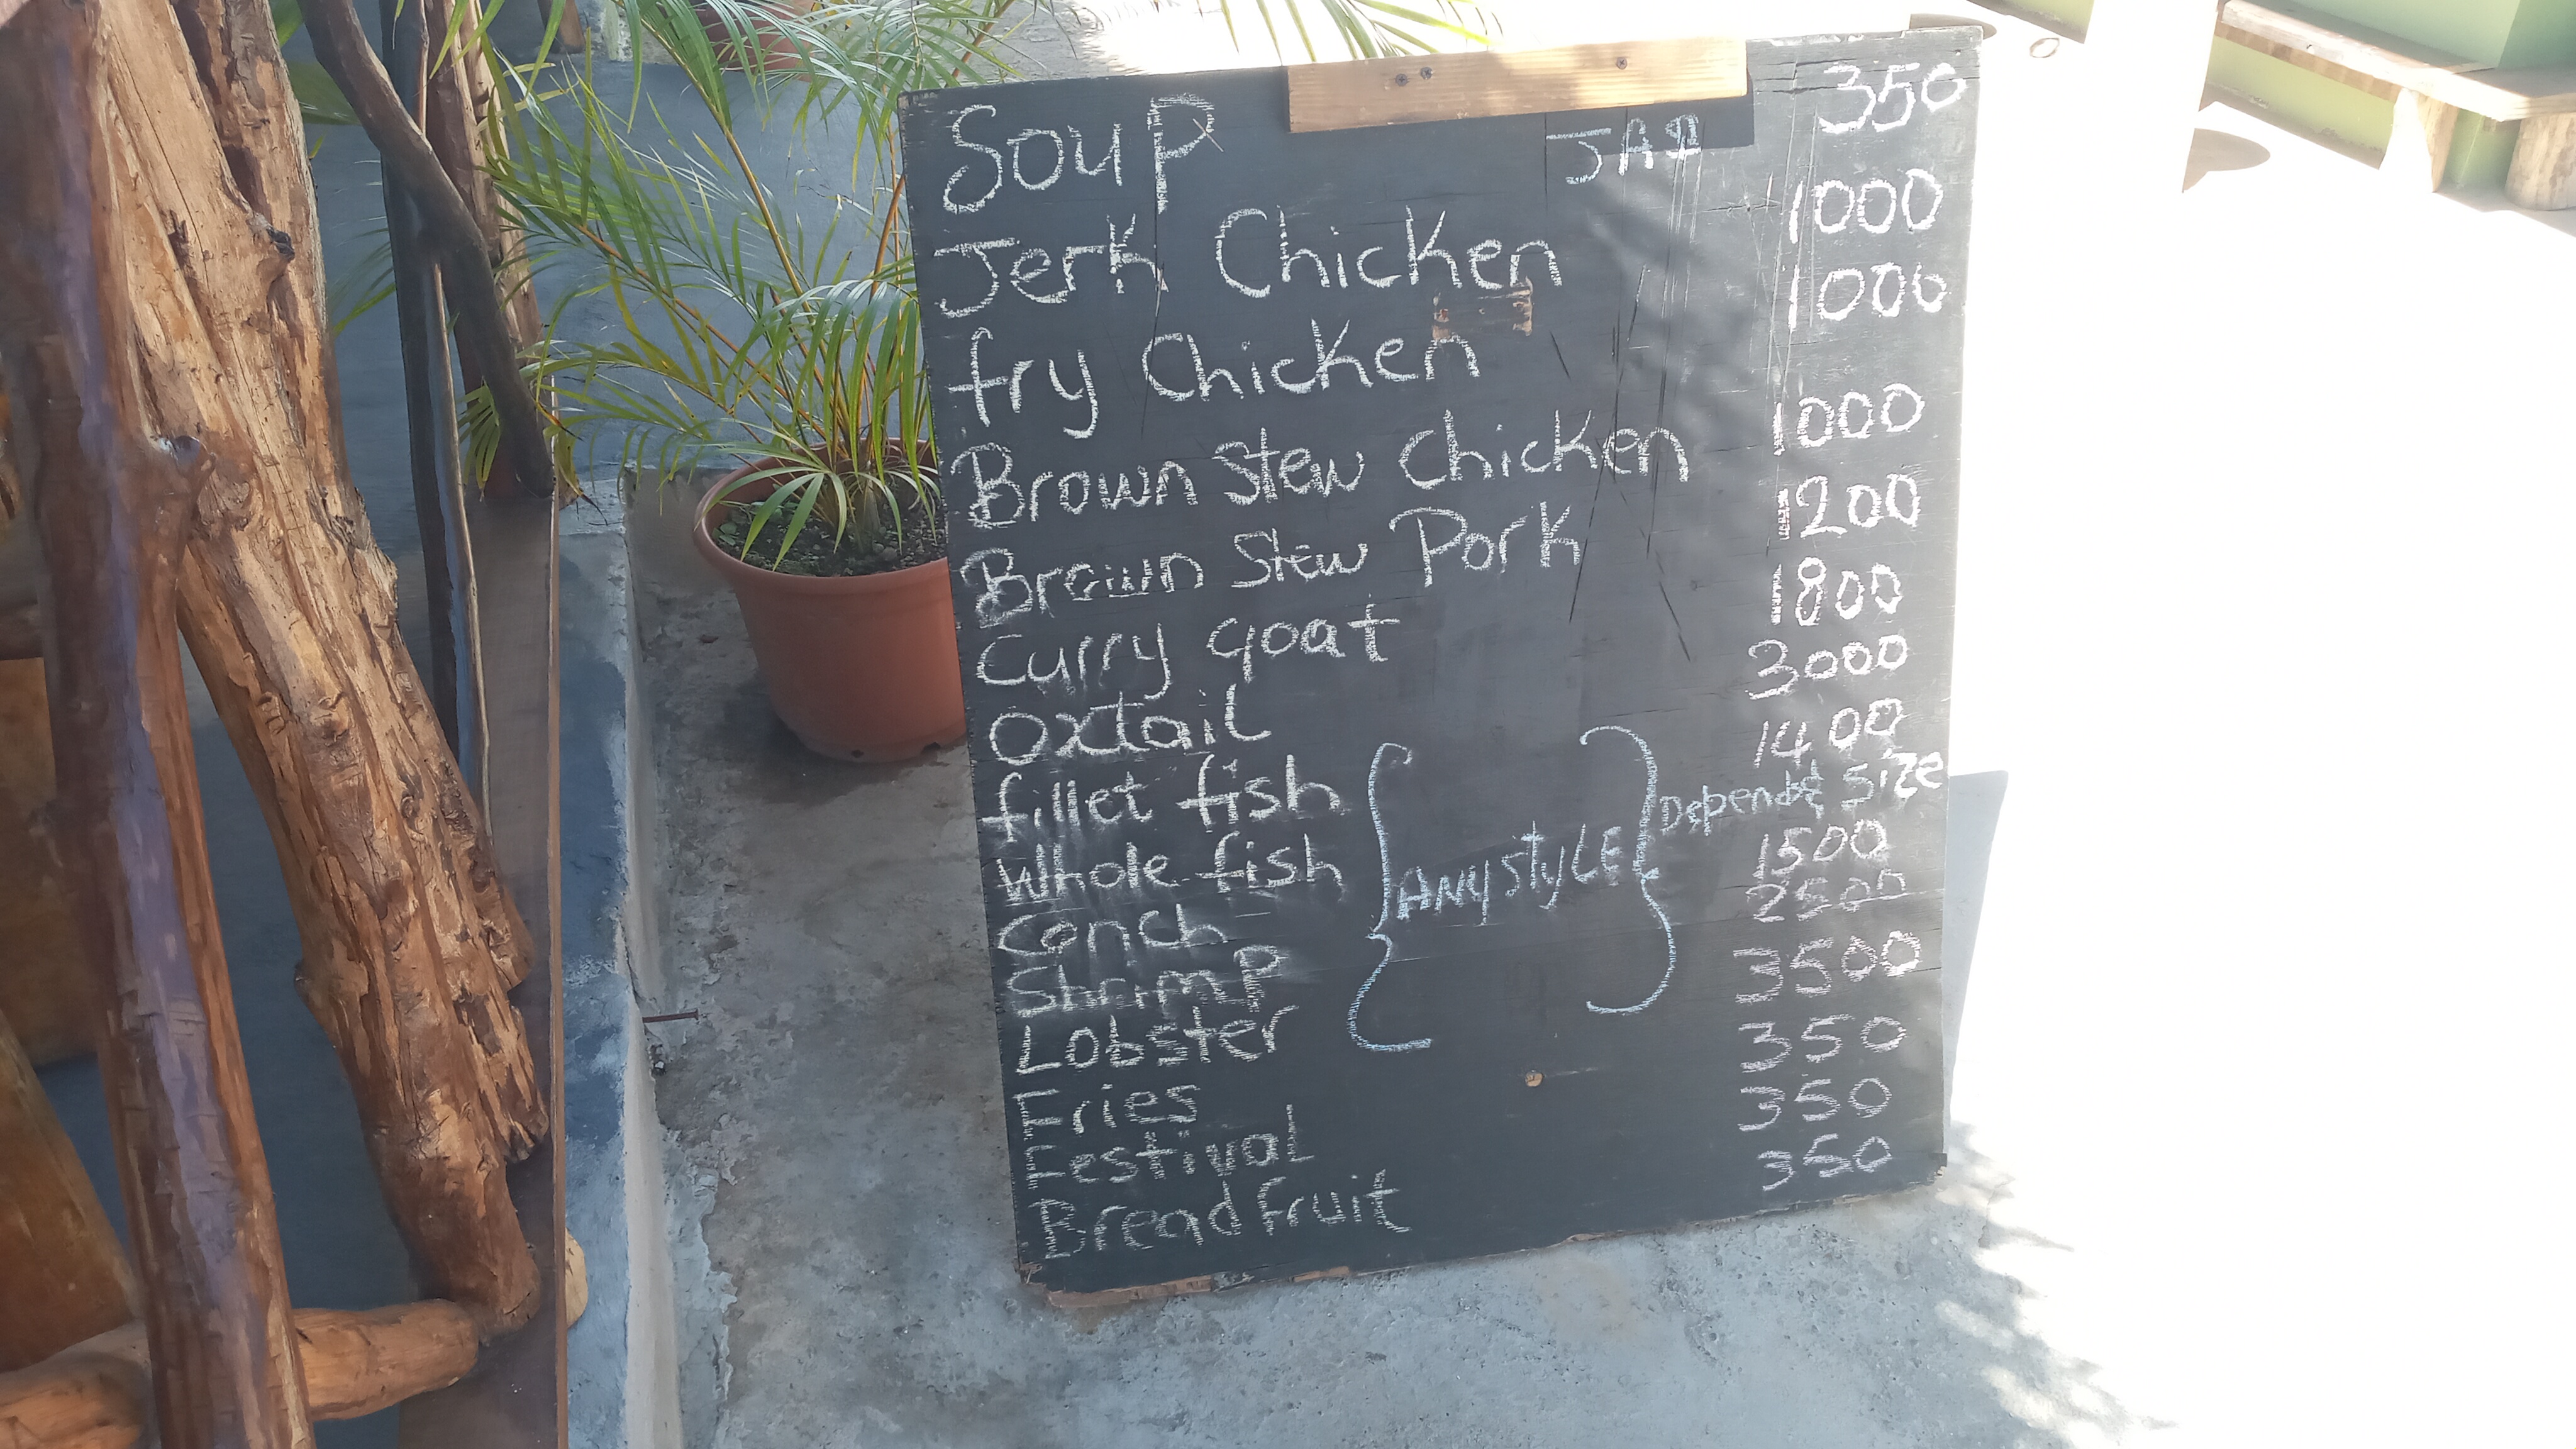 Soup JAD 350
Jerk Chicken 1000
fry Chicken 1000
Brown Stew Chicken 1000
Brown Stew Pork 1200
Curry goat 1800
Oxtail 3000
fillet fish 1400
Whole fish Depend Size
ANY STYLE
Conch 1500
Shrimp 2500
Lobster 3500
Fries 350
Festival 350
Breadfruit 350